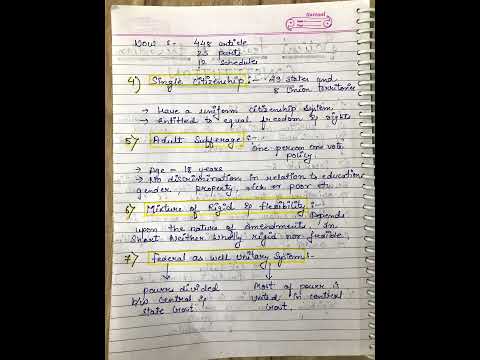 Now :- 448 article
25 parts
12 schedules
4) Single Citizenship :- 29 states and
8 Union territories
→ Have a uniform citizenship system
→ Entitled to equal freedom & rights
5) Adult Sufferage :-
One person one vote
policy
→ Age = 18 years
→ No discrimination in relation to education
gender, property, rich or poor etc.
6) Mixture of Rigid & flexibility :-
Depends
upon the nature of amendments. In
short Neither wholly rigid nor
7) Federal as well Unitary System :-
↓ ↓
powers divided Most of power is
b/w Central & united in central
state Govt. Govt.